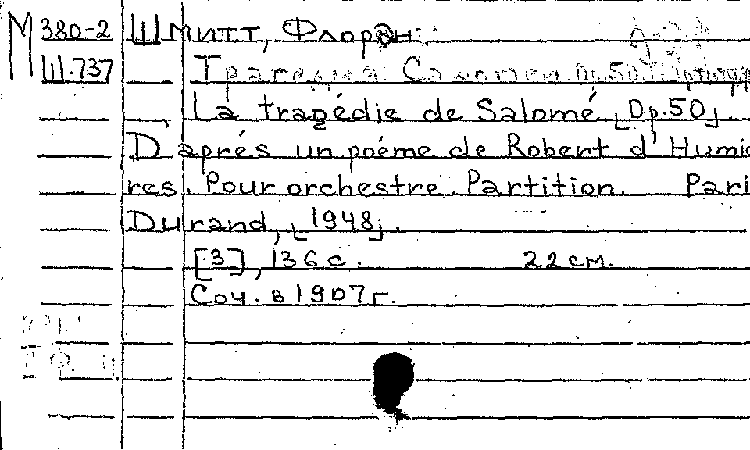 М 380-2 Шмитт, Флоран.
Ш.737 Трагедия Саломеи Op.50.
La tragédie de Salomé [Op.50].
D'aprés un poéme de Robert d'Humiè
res. Pour orchestre. Partition. Pari
Durand, [1948].
[3], 136 с. 22 см.
Соч. в 1907 г.